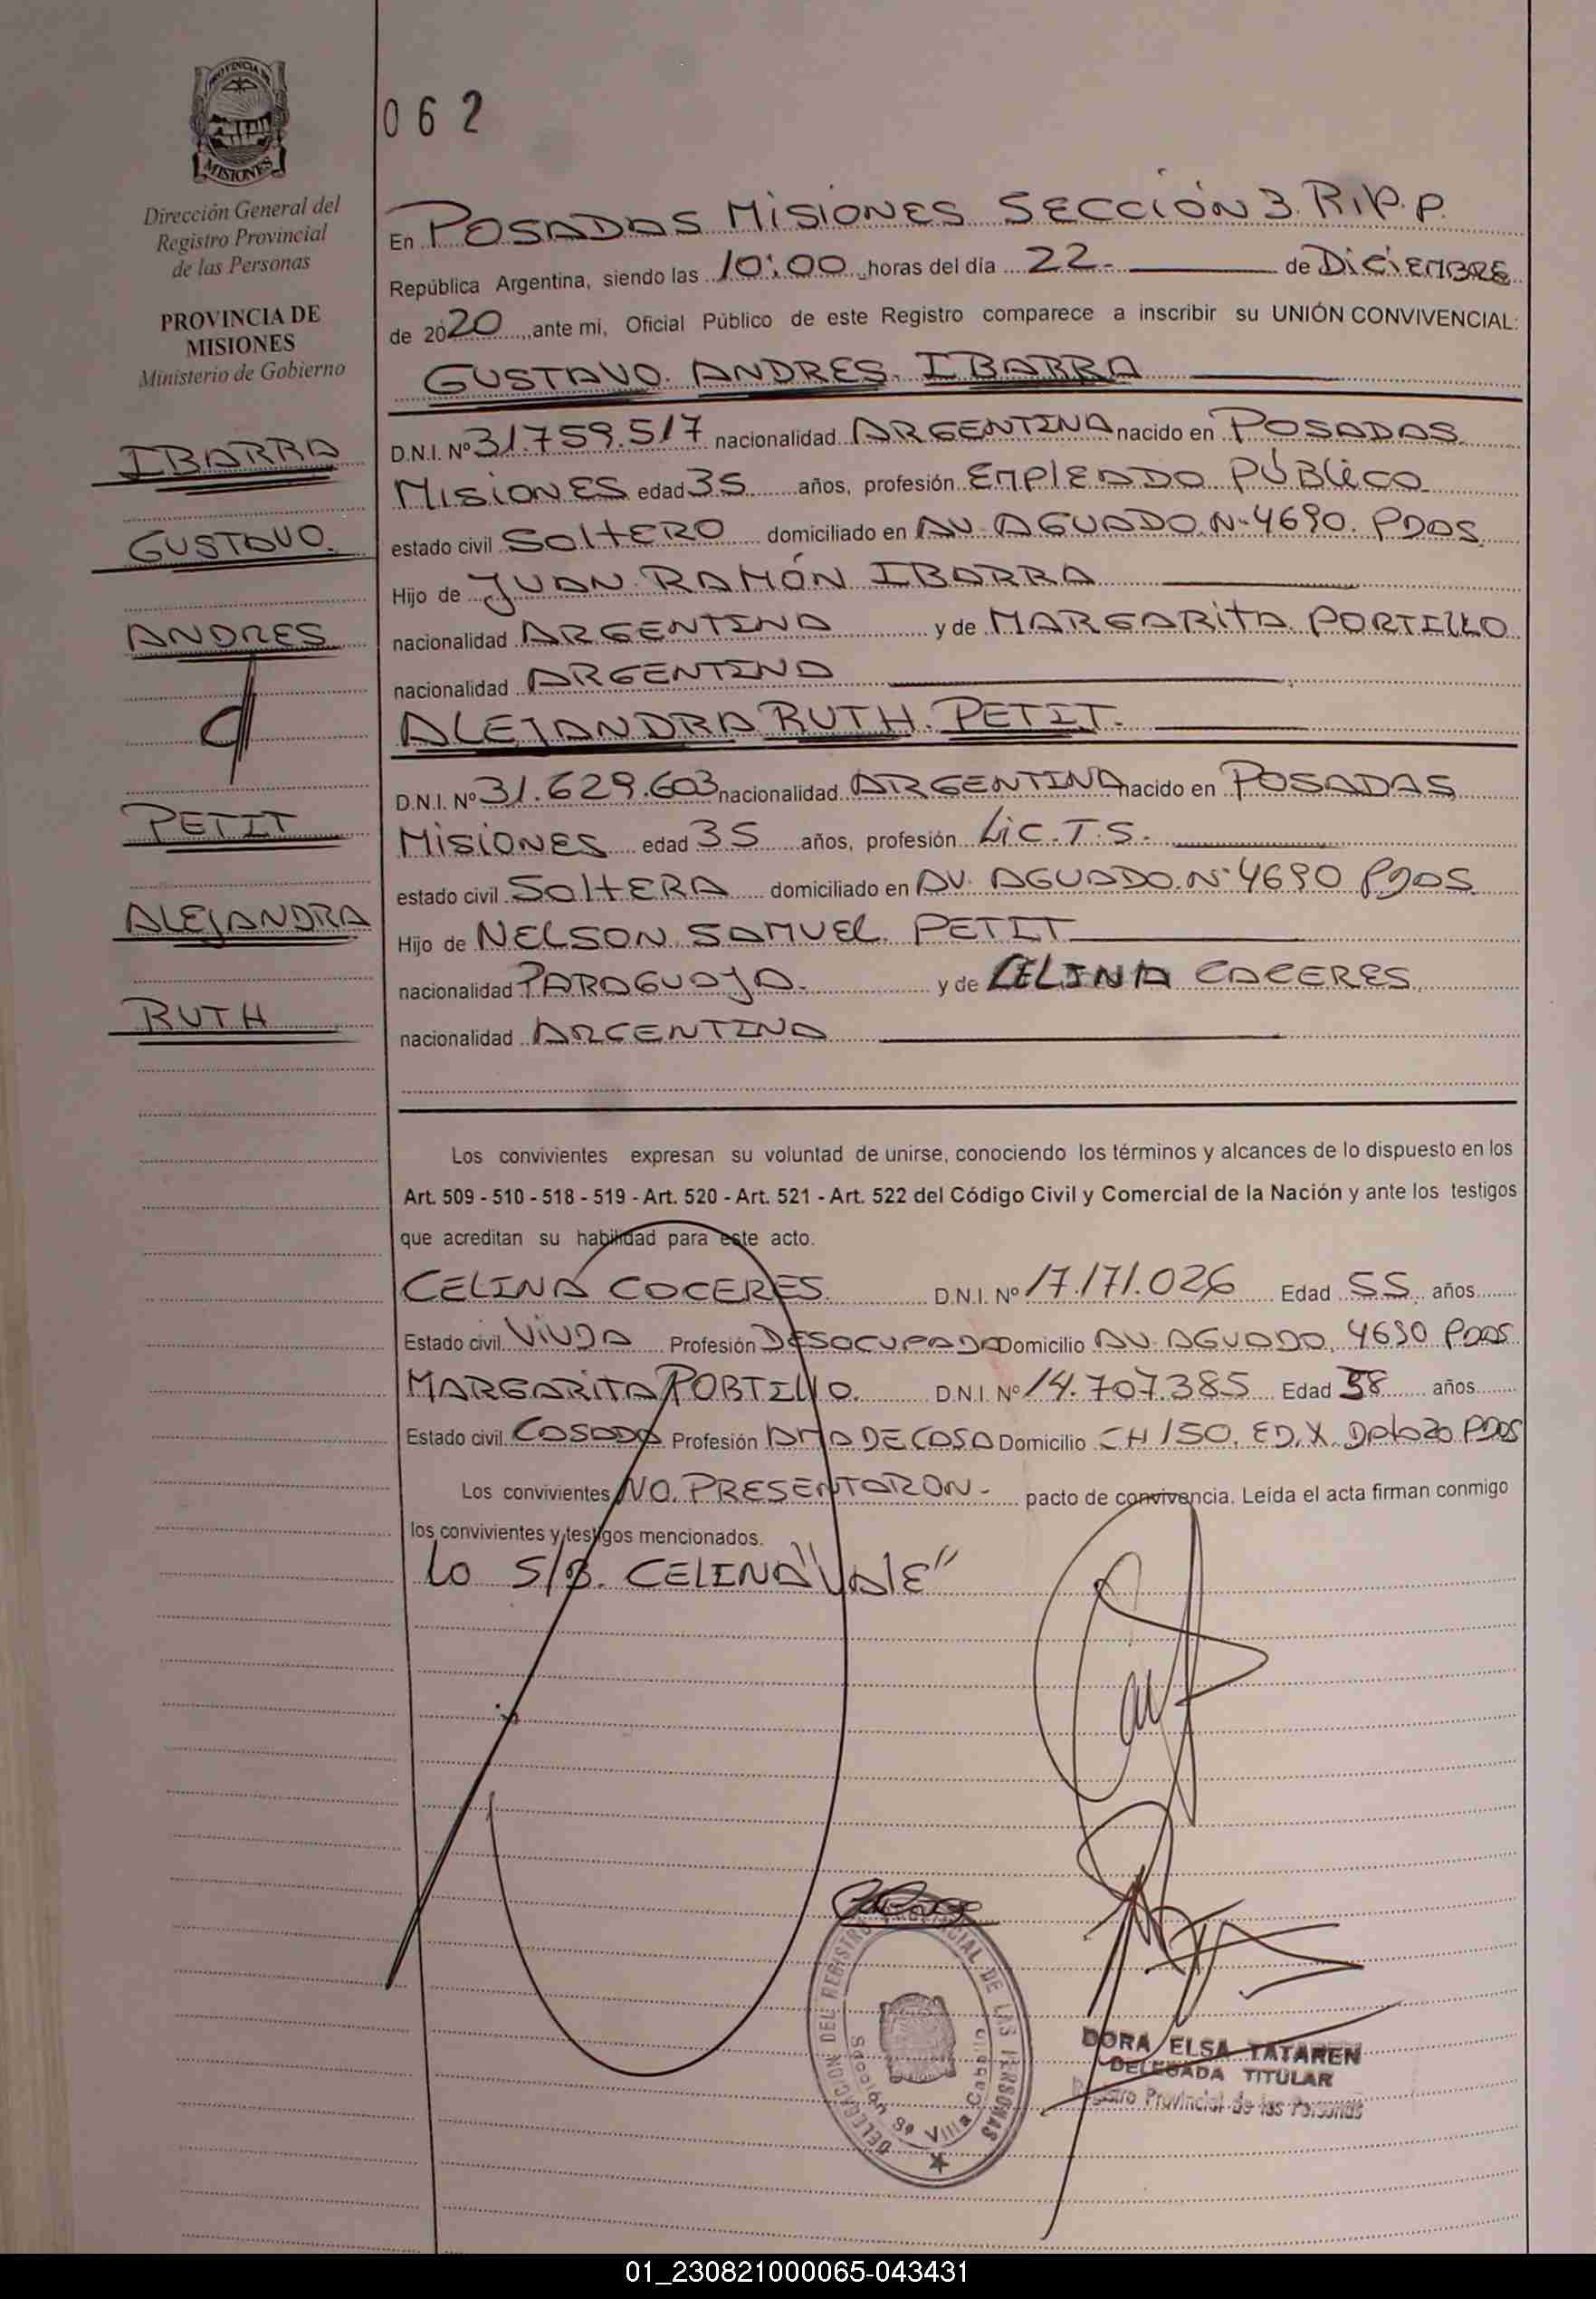 PROVINCIA DE
MISIONES
Dirección General del
Registro Provincial
de las Personas
PROVINCIA DE
MISIONES
Ministerio de Gobierno
IBARRA
GUSTAVO
ANDRES
PETIT
ALEJANDRA
RUTH
062
En POSADAS MISIONES SECCIÓN 3. R.P.P.
República Argentina, siendo las 10:00 horas del día 22- de DICIEMBRE
de 2020 ante mi, Oficial Público de este Registro comparece a inscribir su UNIÓN CONVIVENCIAL:
GUSTAVO ANDRES IBARRA
D.N.I. Nº 31.759.517 nacionalidad ARGENTINA nacido en POSADAS
MISIONES edad 35 años, profesión EMPLEADO PÚBLICO
estado civil SOLTERO domiciliado en AV. AGUADO N-4690. PDAS
Hijo de JUAN RAMÓN IBARRA
nacionalidad ARGENTINA y de MARGARITA PORTILLO
nacionalidad ARGENTINA
ALEJANDRA RUTH PETIT.
D.N.I. Nº 31.629.603 nacionalidad ARGENTINA nacido en POSADAS
MISIONES edad 35 años, profesión Lic. T.S.
estado civil SOLTERA domiciliado en AV. AGUADO N-4690 PDAS.
Hijo de NELSON SAMUEL PETIT
nacionalidad PARAGUAYA. y de CELINA CACERES
nacionalidad ARGENTINA
Los convivientes expresan su voluntad de unirse, conociendo los términos y alcances de lo dispuesto en los
Art. 509 - 510 - 518 - 519 - Art. 520 - Art. 521 - Art. 522 del Código Civil y Comercial de la Nación y ante los testigos
que acreditan su habilidad para este acto.
CELINA COCERES D.N.I. Nº 17.171.026 Edad 55 años
Estado civil VIUDA Profesión DESOCUPADA Domicilio AV. AGUADO, 4690 PDAS
MARGARITA PORTILLO. D.N.I. Nº 14.707.385 Edad 58 años
Estado civil CASADA Profesión AMA DE CASA Domicilio CH 150, ED. X. Dpto 20 PDAS
Los convivientes NO PRESENTARON- pacto de convivencia. Leída el acta firman conmigo
los convivientes y testigos mencionados.
Lo S/B. CELINA "VALE"
DELEGACION DEL REGISTRO PROVINCIAL DE LAS PERSONAS
Sección 3ª Villa Cabello
DORA ELSA TATAREN
DELEGADA TITULAR
Registro Provincial de las Personas
01_230821000065-043431